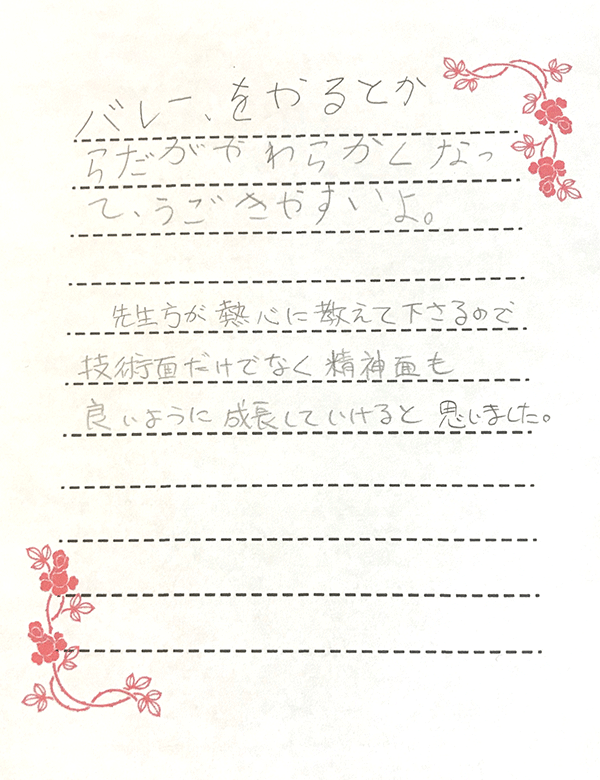 バレー、をやるとか
らだがやわらかくなっ
て、うごきやすいよ。
先生方が熱心に教えて下さるので
技術面だけでなく精神面も
良いように成長していけると思いました。